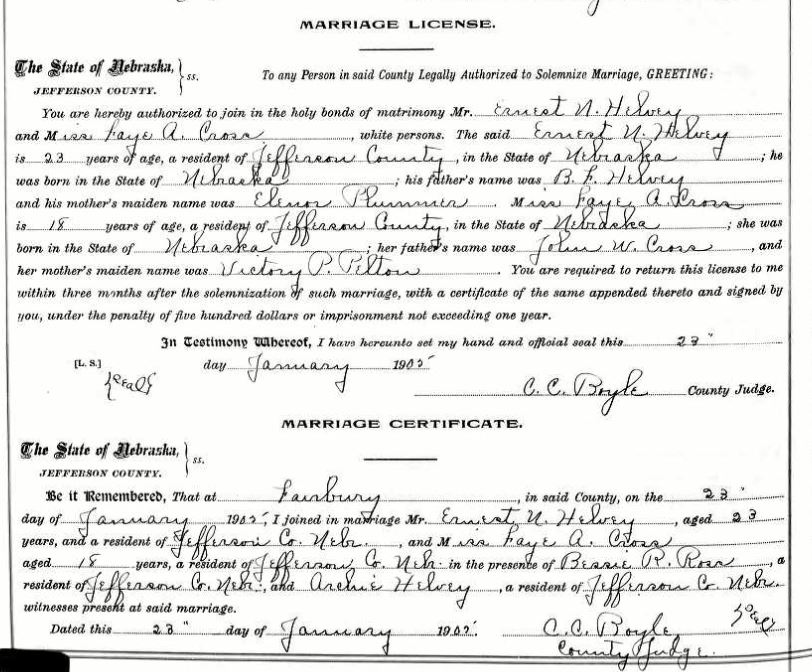 MARRIAGE LICENSE.
The State of Nebraska, } ss.
JEFFERSON COUNTY.
To any Person in said County Legally Authorized to Solemnize Marriage, GREETING:
You are hereby authorized to join in the holy bonds of matrimony Mr. Ernest N. Helvey
and Miss Faye A. Cross, white persons. The said Ernest N. Helvey
is 23 years of age, a resident of Jefferson County, in the State of Nebraska; he
was born in the State of Nebraska; his father's name was B. F. Helvey
and his mother's maiden name was Elenor Plummer. Miss Faye A. Cross
is 18 years of age, a resident of Jefferson County, in the State of Nebraska; she was
born in the State of Nebraska; her father's name was John W. Cross, and
her mother's maiden name was Victory P. Pelton. You are required to return this license to me
within three months after the solemnization of such marriage, with a certificate of the same appended thereto and signed by
you, under the penalty of five hundred dollars or imprisonment not exceeding one year.
In Testimony Whereof, I have hereunto set my hand and official seal this 23"
[L. S.] day January 1905
{Seal}
C. C. Boyle County Judge.
MARRIAGE CERTIFICATE.
The State of Nebraska, } ss.
JEFFERSON COUNTY.
Be it Remembered, That at Fairbury, in said County, on the 23"
day of January 1905, I joined in marriage Mr. Ernest N. Helvey, aged 23
years, and a resident of Jefferson Co. Nebr., and Miss Faye A. Cross
aged 18 years, a resident of Jefferson Co. Nebr. in the presence of Bessie R. Ross, a
resident of Jefferson Co. Nebr., and Archie Helvey, a resident of Jefferson Co. Nebr.
witnesses present at said marriage.
Dated this 23" day of January 1905. C. C. Boyle {Seal}
County Judge.